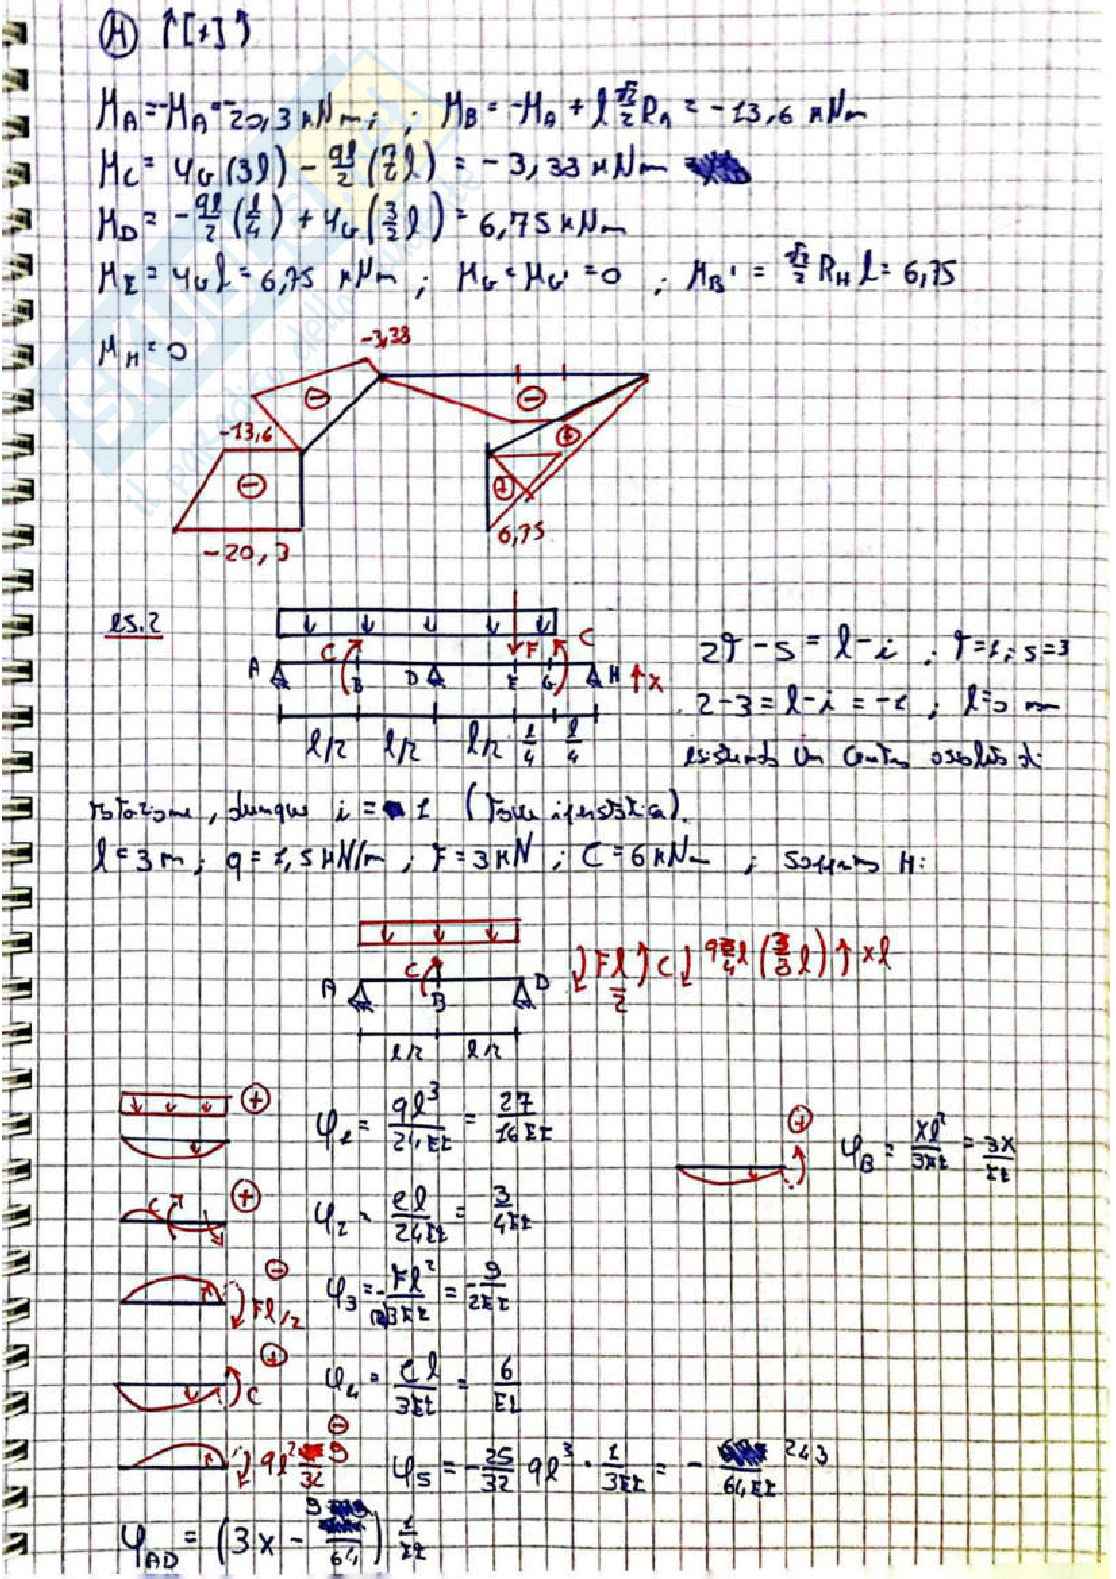 (M) ↑[+]↑
M_A = -M_A = -20,3 kNm ; ; M_B = -M_A + l √2/2 R_A = -13,6 kNm
M_C = Y_G (3l) - ql/2 (7/2 l) = -3,33 kNm
M_D = -ql/2 (l/4) + Y_G (3/2 l) = 6,75 kNm
M_E = Y_G l = 6,75 kNm ; M_G = M_G' = 0 ; M_B' = √2/2 R_H l = 6,75
M_H = 0
-3,38
-13,6
-20,3
6,75
es.2
C F C
A B D E G H ↑x
l/2 l/2 l/2 l/4 l/4
2T - s = l - i ; T=1 ; s=3
2-3 = l-i = -1 ; l=0 non
esistendo un centro assoluto di
rotazione, dunque i = 1 (trave iperstatica).
l = 3 m ; q = 1,5 kN/m ; F = 3 kN ; C = 6 kNm ; H:
A C B D F l/2 C q 3/4 l (3/8 l) x l
l/2 l/2
+ φ_1 = ql³/24EI = 27/16EI
+ φ_B = xl²/3EI = 3x/EI
C + φ_2 = cl/24EI = 3/4EI
- Fl/2 φ_3 = - Fl²/3EI = - 9/2EI
+ C φ_4 = Cl/3EI = 6/EI
- ql² 9/32 φ_5 = - 25/32 ql³ · 1/3EI = - 243/64EI
φ_AD = (3x - 9/64) 1/EI